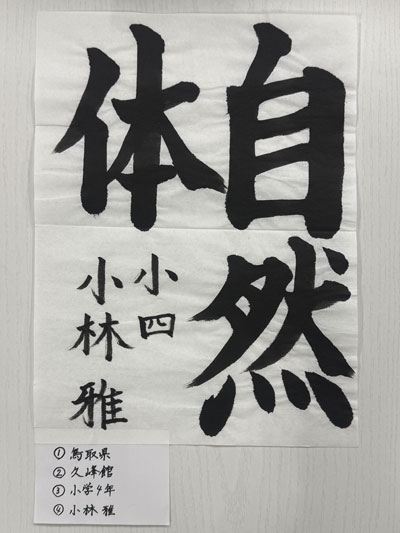 自然
体
小四
小林雅
①鳥取県
②久峰館
③小学4年
④小林雅